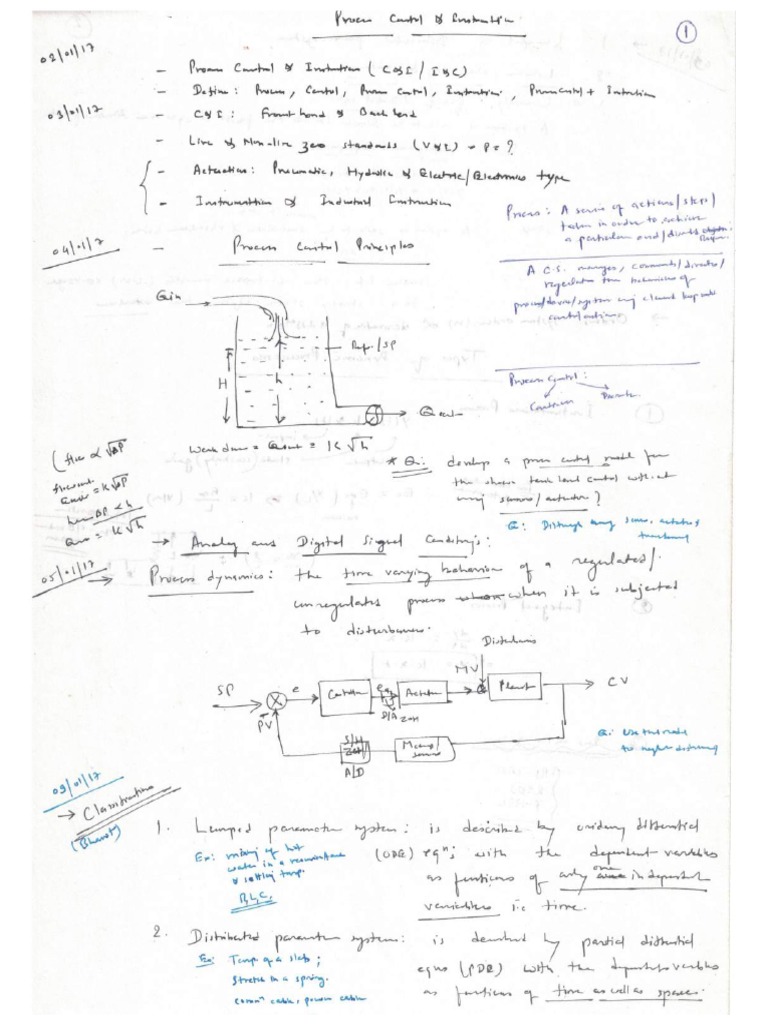 Process Control & Instrumentation
1
02/01/17
- Process Control & Instrumentation (C&I / I&C)
- Define: Process, Control, Process Control, Instrumentation, Process Control + Instrumentation
03/01/17
- C&I: Front hand & Back end
- Live & Non-live zero standards (V&I) - P = ?
- Actuation: Pneumatic, Hydraulic & Electric/Electronics type
- Instrumentation & Industrial Instrumentation
Process: A series of actions/steps/
taken in order to achieve
a particular end/
04/01/17
- Process Control Principles
A C.S. manages, commands/directs/
regulates the behaviour of
process/device/system using closed loop
control actions
Qin
Ref./SP
H
h
Qout
Process Control:
Continuous
Discrete
= Qout = K√h
(flow ∝ √ΔP
Qout = K√ΔP
here ΔP ∝ h
Qout = K√h
* Q: develop a process control model for
the shown tank level control without
using sensors/actuator?
Q: Distinguish among sensor, actuator &
transducer
→ Analog and Digital Signal Conditioning:
05/01/17
⇒ Process dynamics: the time varying behaviour of a regulated/
unregulated process when it is subjected
to disturbances.
Disturbances
SP
e
Controller
D/A ZOH
Actuator
MV
Plant
CV
PV
S/H
A/D
Meas/
sensor
09/01/17
→ Classification
(Bharat)
1. Lumped parameter system: is described by ordinary differential
(ODE) eqn; with the dependent variables
as functions of only one independent
variables i.e time.
Ex: mixing of hot
water in a
& setting temp.
R, L, C,
2. Distributed parameter system: is described by partial differential
eqns (PDE) with the dependent variables
as functions of time as well as space.
Ex: Temp of a slab;
Stretch in a spring.
commn cable, power cable